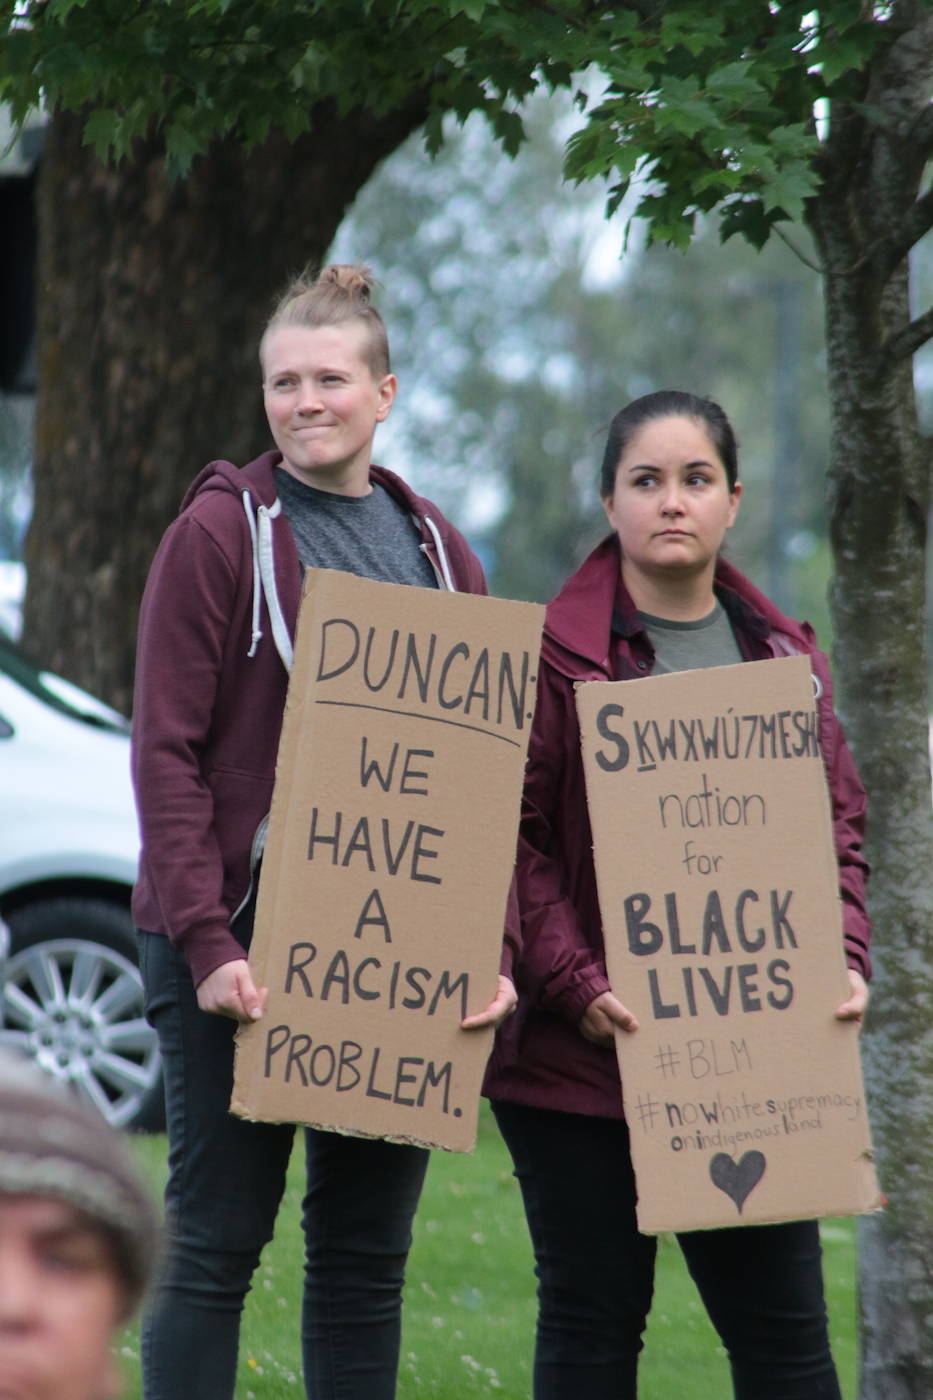 DUNCAN:
WE
HAVE
A
RACISM
PROBLEM.
SḴWXWÚ7MESH
nation
for
BLACK
LIVES
#BLM
#nowhitesupremacy
onindigenousland